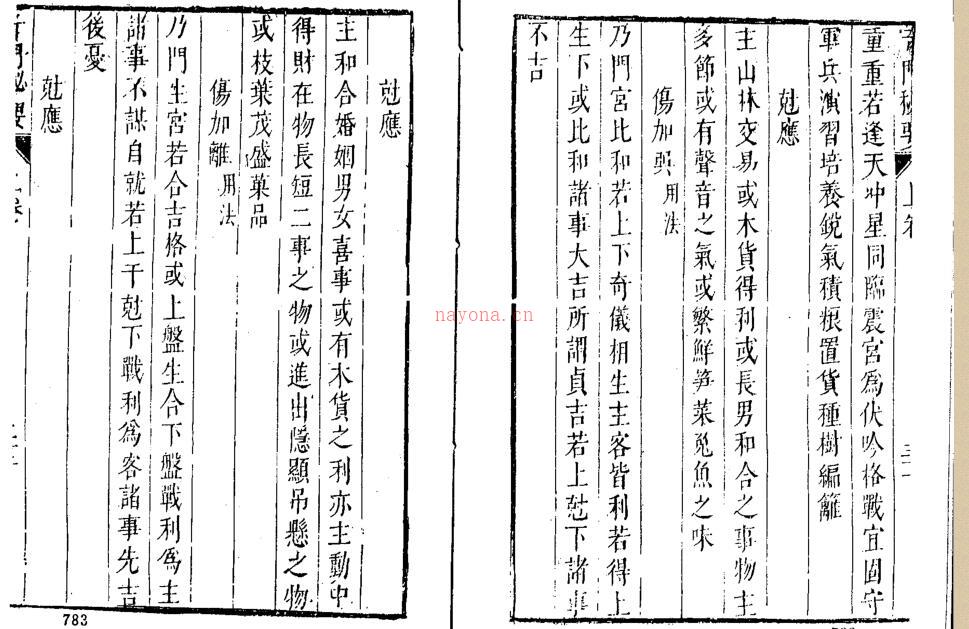 重重若逢天冲星同臨震宮爲伏吟格戰宜固守
軍兵演習培養銳氣積粮置貨種樹編籬
尅應
主山林交易或木貨得利或長男和合之事物主
多節或有聲音之氣或繁鮮笋菜兎魚之味
傷加巽用法
乃門宮比和若上下奇儀相生主客皆利若得上
生下或比和諸事大吉所謂貞吉若上尅下諸事
不吉
尅應
主和合婚姻男女喜事或有木貨之利亦主動中
得財在物長短二事之物或進出隱顯吊懸之物
或枝葉茂盛菓品
傷加離用法
乃門生宮若合吉格或上盤生合下盤戰利爲主
諸事不謀自就若上干尅下戰利爲客諸事先吉
後憂
尅應
nayona.cn
783